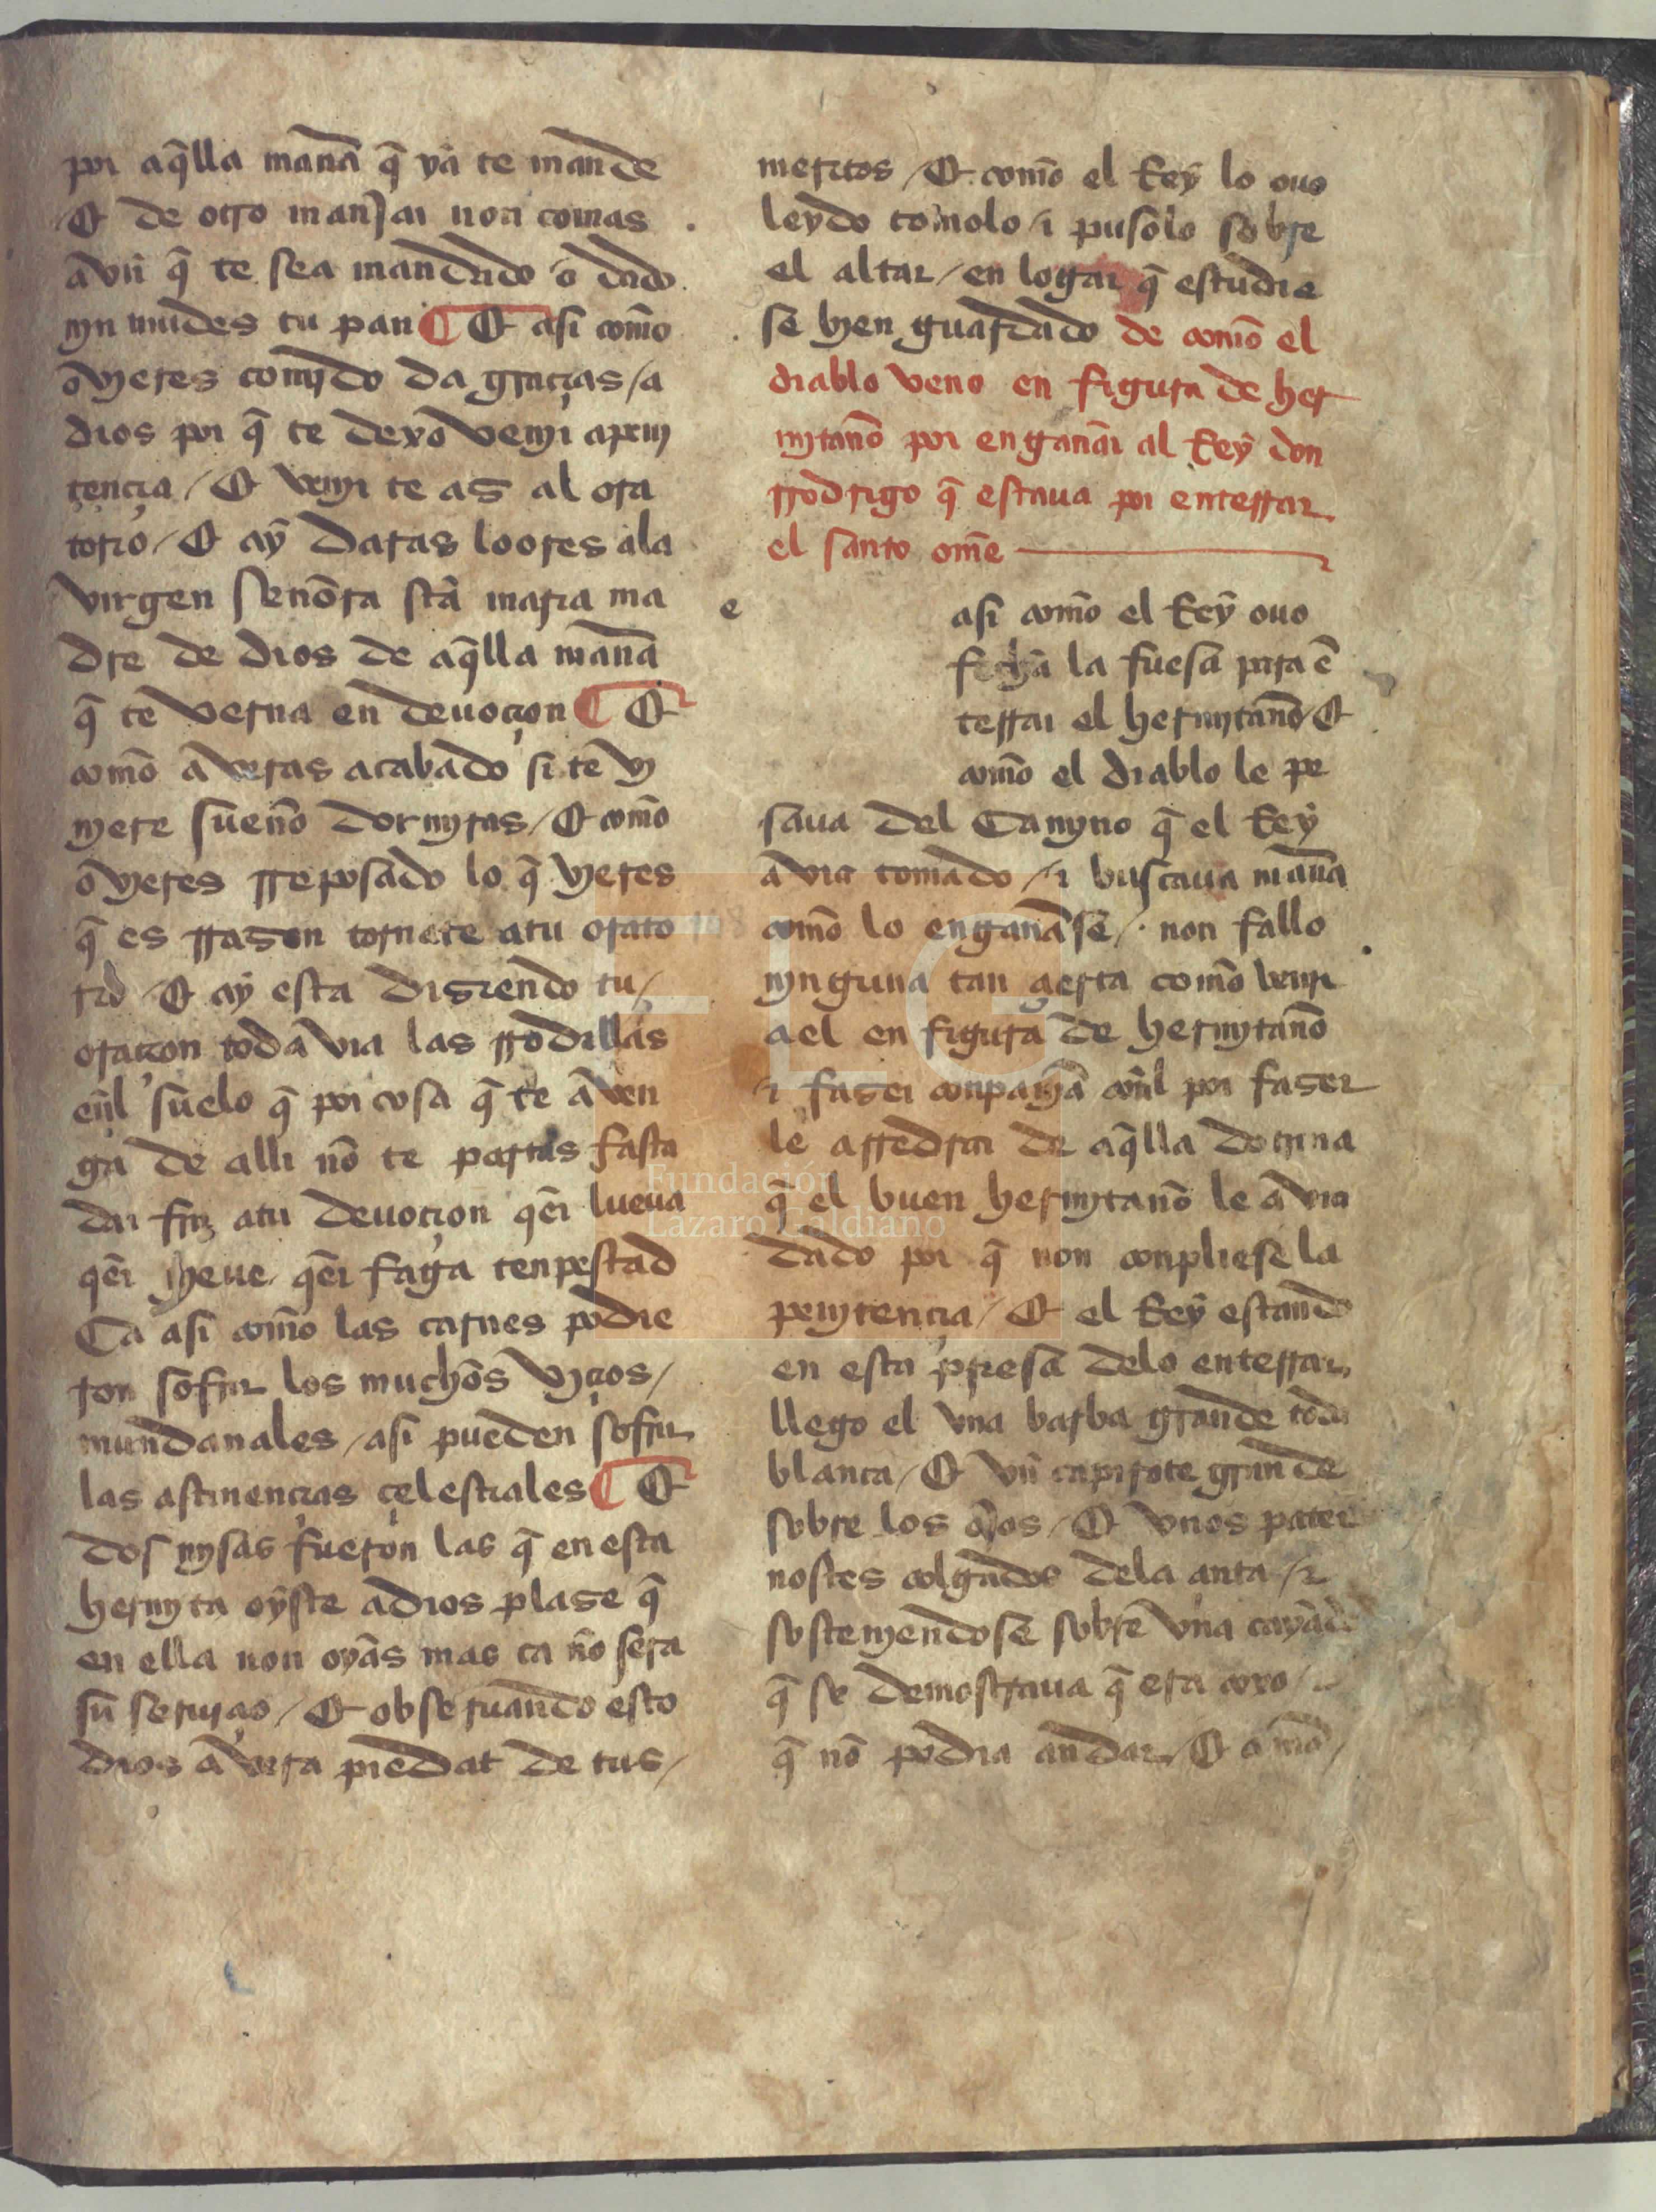 por aq̃lla mañana q̃ ya te mande
Et de otro manjar non comas
avn q̃ te sea mandado o dado
nyn mudes tu pan ¶ Et asi com̃o
ovyeres comydo da graçias / a
dios por q̃ te dexo venyr a peny
tençia / Et venyr te as al ora
torio / Et aỹ daras loores ala
virgen señora sta᷉ maria ma
dre de dios de aq̃lla mañ̃a
q̃ te verna en deuoçion ¶ Et
com̃o averas acabado si te vy
nyere sueño dormyras / Et com̃o
ovyeres rreposado lo q̃ vyeres
q̃ es rrason tornate atu orato
rio Et aỹ esta disiendo tu /
oraçion toda via las rrodillas
eñl suelo q̃ por cosa q̃ te aven
ga de alli nõ te partas fasta
dar fin atu deuoçion q̃er llueua
q̃er nyeue q̃er faga tenpestad
Ca asi com̃o las carnes podie
ron sofrir los muchos vyçios /
mundanales / asi pueden sofrir
las astinençias çelestiales ¶ Et
dos mysas fueron las q̃ en esta
hermyta oyste a dios plase q̃
en ella non oyas mas ca nõ sera
su seruyçio / Et obseruando esto
dios avera piedat de tus /
meritos / Et com̃o el Reỹ lo ouo
leydo tomolo / τ pusolo sobre
el altar / en logar q̃ estudie
se byen guardado de com̃o el
diablo veno en figura de her
mytaño por engañar al Reỹ don
rrodrigo q̃ estaua por enterrar
el santo om̃e
e
asi com̃o el Reỹ ouo
fecha la fuesa para ẽ
terrar el hermytaño / Et
com̃o el diablo le pe
saua del Camyno q̃ el Reỹ
avia tomado / τ buscaua mañ̃a
com̃o lo engañase / non fallo
nynguna tan çierta como venir
a el en figura de hermytaño
τ faser conpañya coñl por faser
le arredrar de aq̃lla dotrina
q̃ el buen hermytaño le avia
dado por q̃ non conpliese la
penytençia / Et el Reỹ estando
en esta priesa delo enterrar
llego el vna barba grande toda
blanca / Et vn capirote grande
sobre los ojos / Et vnos pater
nostes colgados dela çinta / τ
sosteniendose sobre vna cayada
q̃ se demostraua q̃ era coxo /
q̃ nõ podia andar / Et com̃o /
Fundación
Lázaro Galdiano
FLG